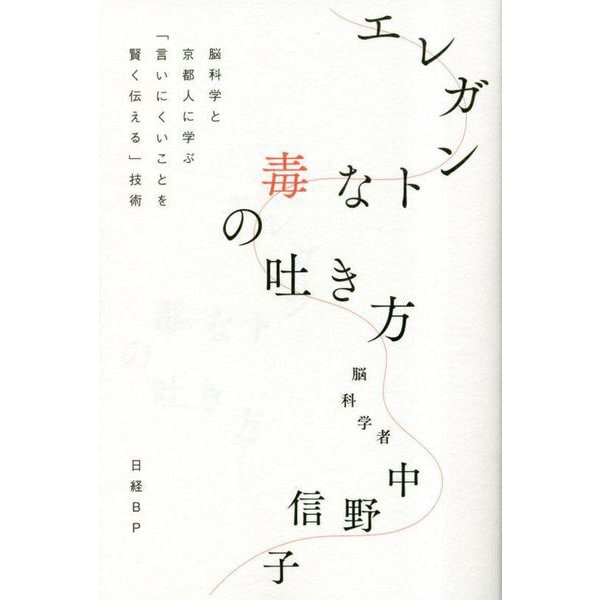 エレガントな毒の吐き方
脳科学者
中野信子
脳科学と
京都人に学ぶ
「言いにくいことを
賢く伝える」技術
日経BP